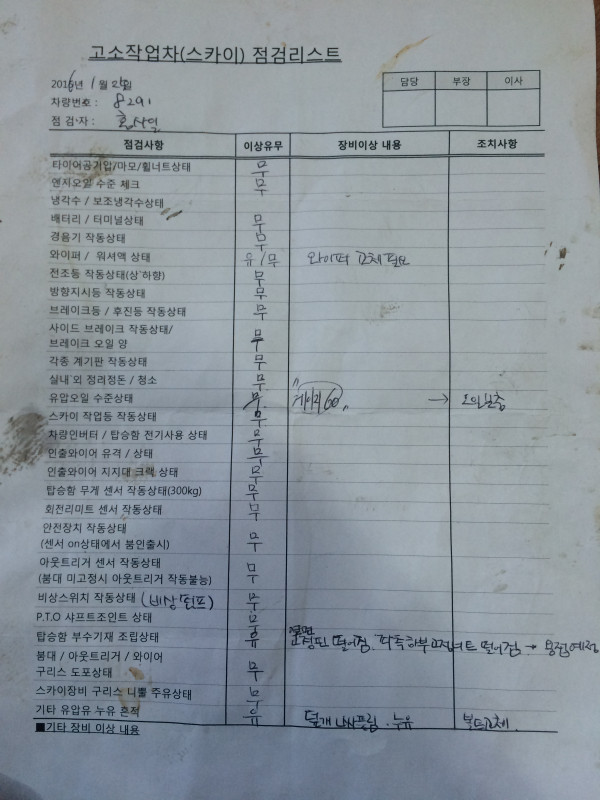 고소작업차(스카이) 점검리스트
2016년 1월 25일
담당 부장 이사
차량번호 : 8291
점 검·자 :
점검사항 이상유무 장비이상 내용 조치사항
타이어공기압/마모/휠너트상태 무
엔지오일 수준 체크 무
냉각수 / 보조냉각수상태
배터리 / 터미널상태 무
경음기 작동상태 무
와이퍼 / 워셔액 상태 유/무 와이퍼 교체 필요
전조등 작동상태(상·하향) 무
방향지시등 작동상태 무
브레이크등 / 후진등 작동상태 무
사이드 브레이크 작동상태/
브레이크 오일 양 무
각종 계기판 작동상태 무
실내·외 정리정돈 / 청소 무
유압오일 수준상태 무. "게이지 60" → 오일보충
스카이 작업등 작동상태 무
차량인버터 / 탑승함 전기사용 상태 무
인출와이어 유격 / 상태 무
인출와이어 지지대 크랙 상태 무
탑승함 무게 센서 작동상태(300kg) 무
회전리미트 센서 작동상태 무
안전장치 작동상태
(센서 on상태에서 붐인출시) 무
아웃트리거 센서 작동상태
(붐대 미고정시 아웃트리거 작동불능) 무
비상스위치 작동상태 (비상펌프) 무
P.T.O 샤프트조인트 상태 무
탑승함 부수기재 조립상태 유 고정핀 떨어짐. 떨어짐 → 용접예정
붐대 / 아웃트리거 / 와이어
구리스 도포상태 무
스카이장비 구리스 니쁠 주유상태 무
기타 유압유 누유 흔적 유 덮개 나사풀림 · 누유 볼트교체.
■기타 장비 이상 내용